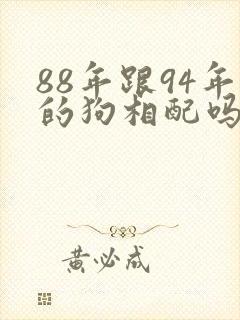 88年跟94年
的狗相配吗
黄必成